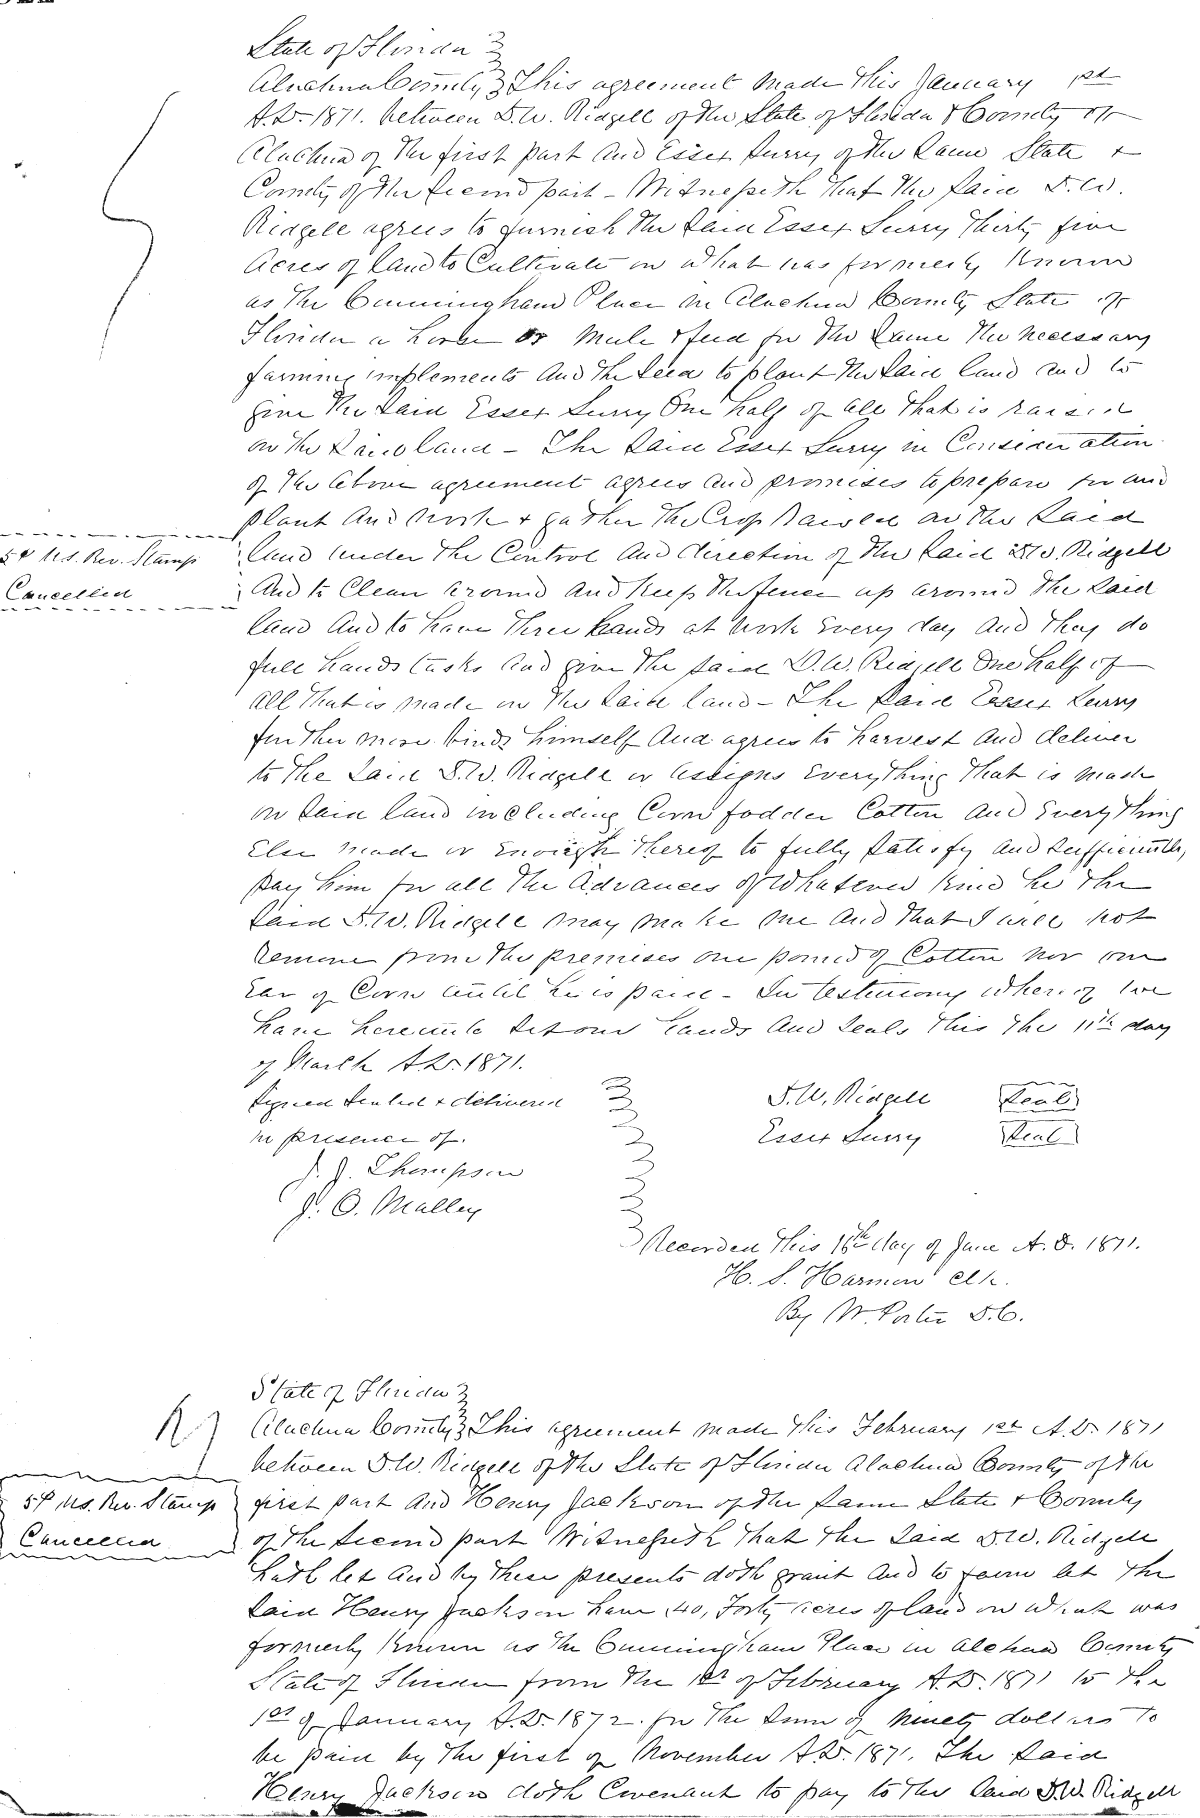 State of Florida
Alachua County This agreement made this January 1st
A.D. 1871. between D.W. Ridgell of the State of Florida & County of
Alachua of the first part and Essex Surry of the Same State &
County of the Second part - Witnesseth that the Said D.W.
Ridgell agrees to furnish the Said Essex Surry Thirty five
Acres of land to Cultivate on what was formerly Known
as the Cunningham Place in Alachua County State of
Florida a horse or mule & feed for the Same the necessary
farming implements and the Seed to plant the Said land and to
give the Said Essex Surry One half of all that is raised
on the Said land - The Said Essex Surry in Consideration
of the above agreement agrees and promises to prepare for and
plant and work & gather the Crop Raised on the Said
5¢ U.S. Rev. Stamp
Cancelled
land under the Control and direction of the Said D.W. Ridgell
And to Clean around and keep the fence up around the Said
land and to have three hands at work Every day and they do
full hands tasks and give the Said D.W. Ridgell One half of
all that is made on the Said land - The Said Essex Surry
further more binds himself and agrees to harvest and deliver
to the Said D.W. Ridgell or assigns Everything that is made
on Said land including Corn fodder Cotton and Everything
Else made or Enough thereof to fully Satisfy and Sufficiently
pay him for all the Advances of Whatever Kind he the
Said D.W. Ridgell may make me and that I will not
remove from the premises one pound of Cotton nor one
Ear of Corn until he is paid - In testimony whereof we
have hereunto Set our hands and Seals this the 11th day
of March A.D. 1871.
Signed Sealed & delivered
in presence of.
J. J. Thompson
J. O. Malley
D.W. Ridgell Seal
Essex Surry Seal
Recorded this 16th day of June A.D. 1871.
H. S. Harmon Clk.
By W. Porter D.C.
State of Florida
Alachua County This agreement made this February 1st A.D. 1871
between D.W. Ridgell of the State of Florida Alachua County of the
5¢ U.S. Rev. Stamp
Cancelled
first part and Henry Jackson of the Same State & County
of the Second part Witnesseth that the Said D.W. Ridgell
hath let and by these presents doth grant and to farm let the
Said Henry Jackson have 40, Forty acres of land on what was
formerly Known as the Cunningham Place in Alchua County
State of Florida from the 1st of February A.D. 1871 to the
1st of January A.D. 1872. for the Sum of Ninety dollars to
be paid by the first of November A.D. 1871. The Said
Henry Jackson doth Covenant to pay to the Said D.W. Ridgell